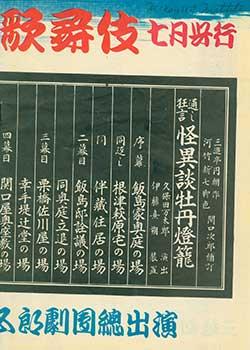 歌舞伎 七月好行
三遊亭円朝作
河竹新七脚色 関口次郎補訂
通し狂言 怪異談牡丹燈籠
久保田万太郎 演出
伊藤熹朔 装置
序幕 飯島家奥庭の場
同返し 根津萩原宅の場
同 伴蔵住居の場
二幕目 飯島邸詮議の場
同奥庭立退の場
三幕目 栗橋佐川屋の場
幸手堤辻堂の場
四幕目 関口屋奥座敷の場
五郎劇団総出演